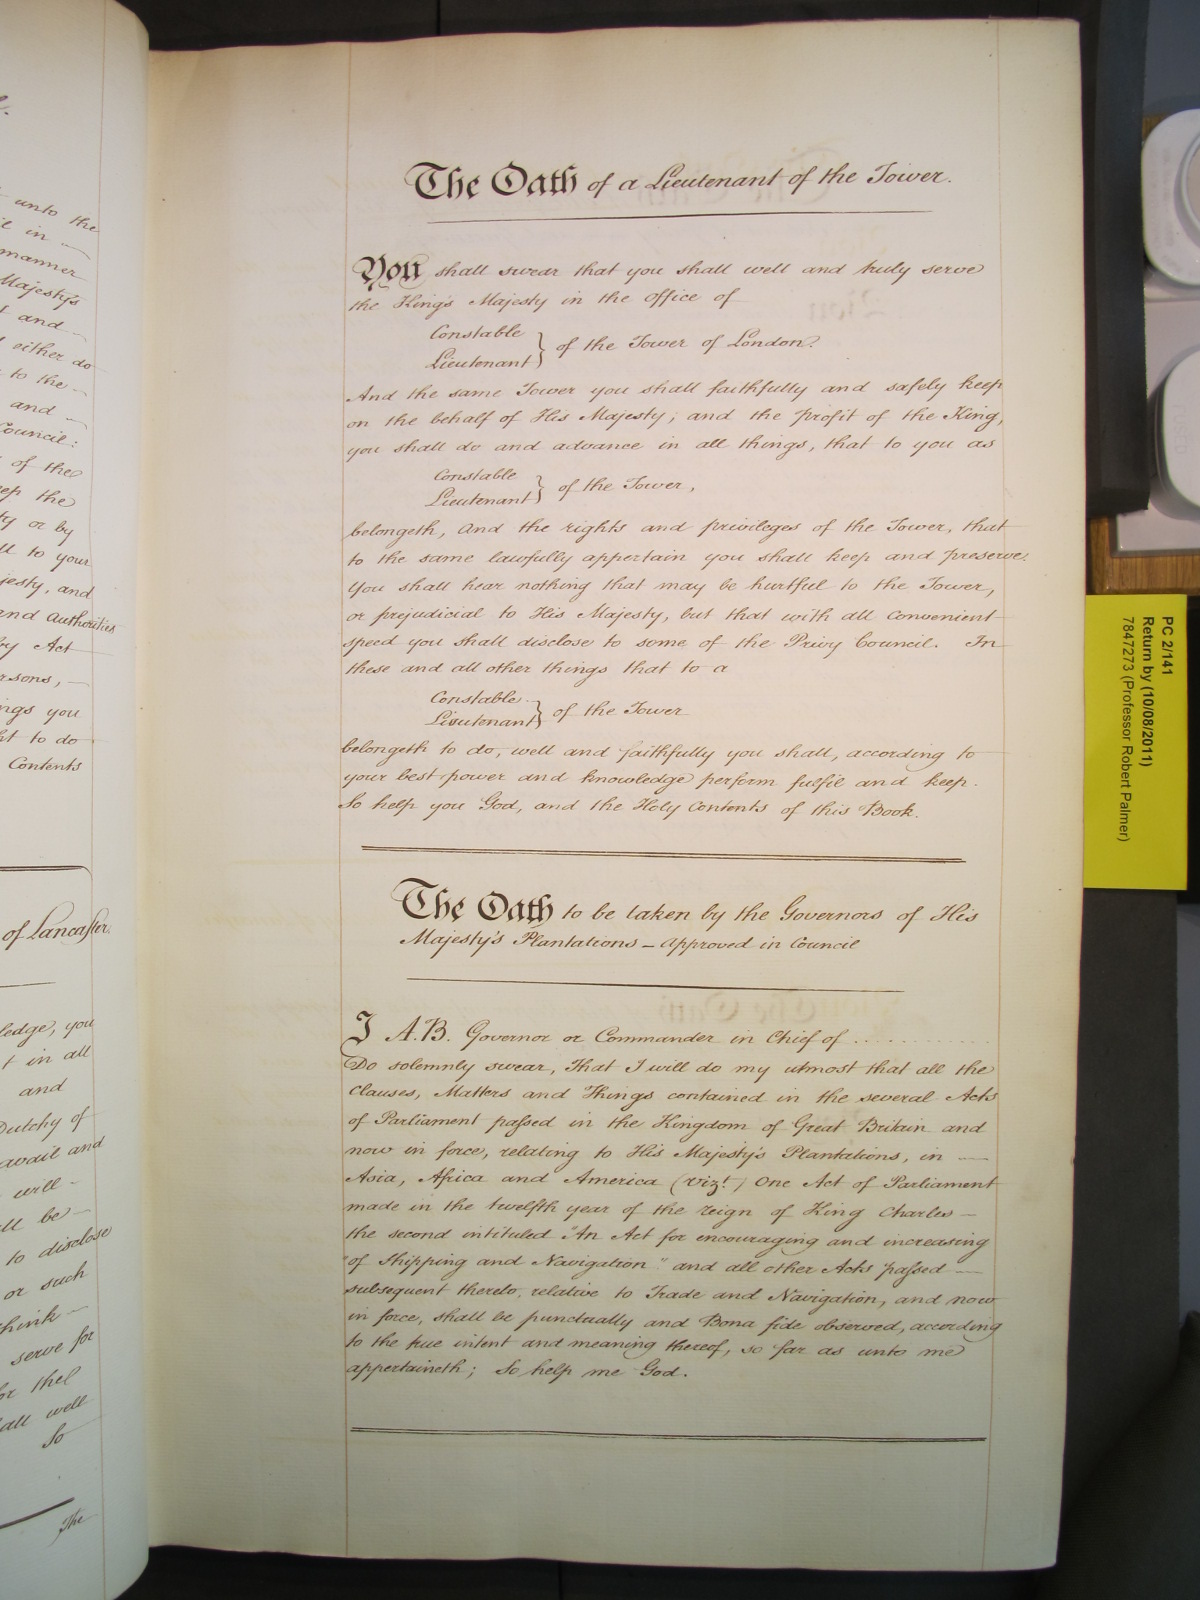 unto the
in —
manner
Majesty's
and —
either do
to the —
and —
Council:
of the
keep the
or by
to your
Majesty, and
and Authorities
by Act
persons, —
you
to do
Contents
of Lancaster.
you
in all
and
Dutchy of
avail and
will -
be -
to disclose
or such
think -
serve for
or thel
shall well
So
The
The Oath of a Lieutenant of the Tower.
You shall swear that you shall well and truly serve
the King's Majesty in the office of
Constable
Lieutenant } of the Tower of London.
And the same Tower you shall faithfully and safely keep
on the behalf of His Majesty; and the profit of the King,
you shall do and advance in all things, that to you as
Constable
Lieutenant } of the Tower,
belongeth, And the rights and privileges of the Tower, that
to the same lawfully appertain you shall keep and preserve.
You shall hear nothing that may be hurtful to the Tower,
or prejudicial to His Majesty, but that with all convenient
speed you shall disclose to some of the Privy Council. In
these and all other things that to a
Constable
Lieutenant } of the Tower
belongeth to do, well and faithfully you shall, according to
your best power and knowledge perform fulfil and keep.
So help you God, and the Holy Contents of this Book.
The Oath to be taken by the Governors of His
Majesty's Plantations — approved in Council
I A.B. Governor or Commander in Chief of ............
Do solemnly swear, That I will do my utmost that all the
Clauses, Matters and Things contained in the several Acts
of Parliament passed in the Kingdom of Great Britain and
now in force, relating to His Majesty's Plantations, in —
Asia, Africa and America (vizt.) One Act of Parliament
made in the twelfth year of the reign of King Charles —
the second intituled "An Act for encouraging and increasing
"of Shipping and Navigation" and all other Acts passed —
subsequent thereto, relative to Trade and Navigation, and now
in force, shall be punctually and Bona fide observed, according
to the true intent and meaning thereof, so far as unto me
appertaineth; So help me God.
PC 2/141
Return by (10/08/2011)
7847273 (Professor Robert Palmer)